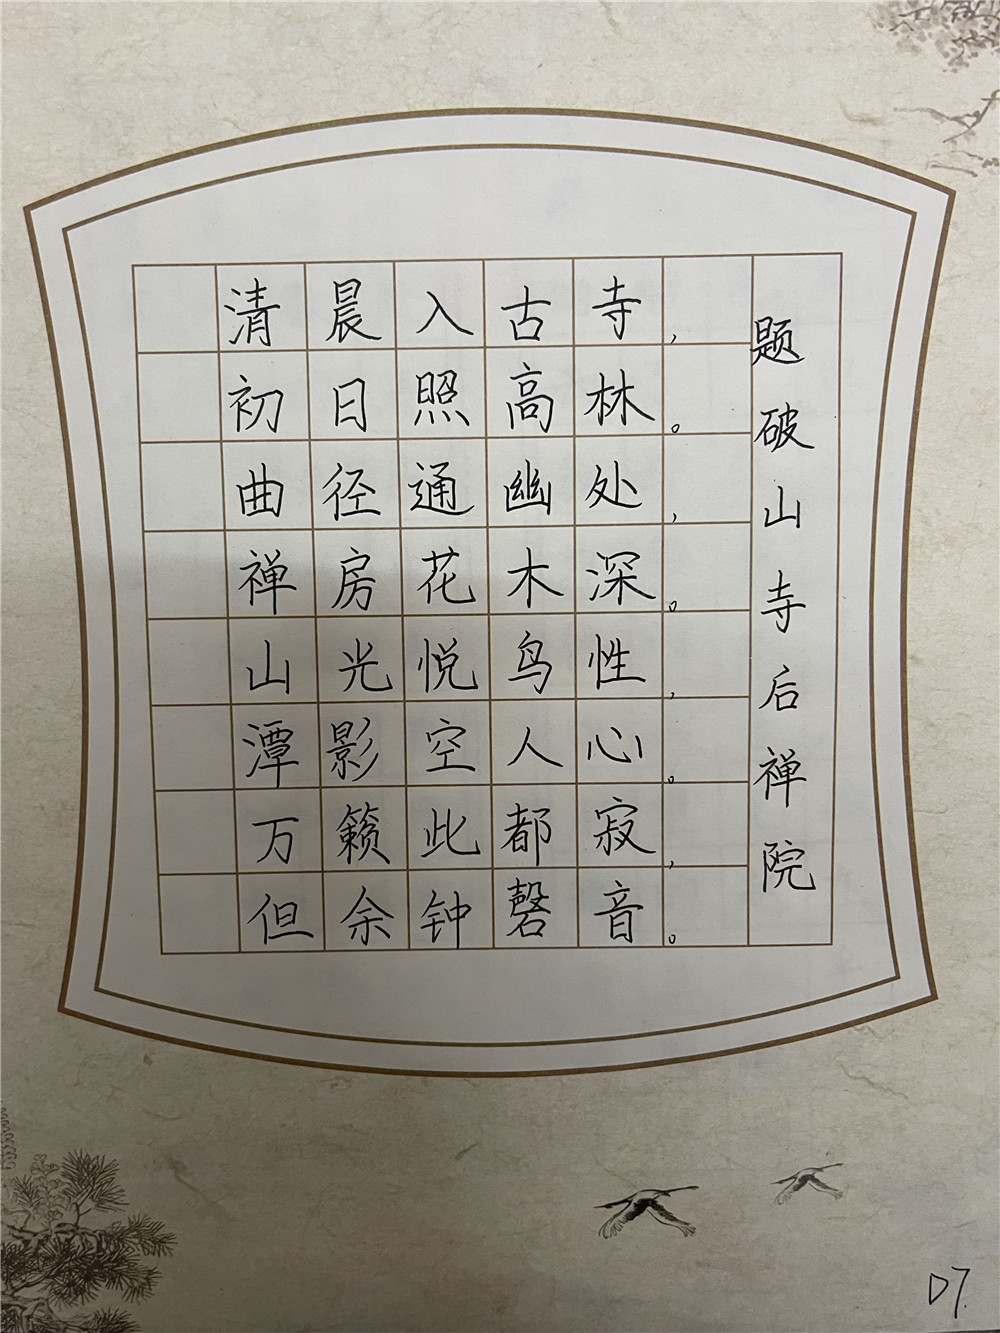 题破山寺后禅院
清晨入古寺,
初日照高林。
曲径通幽处,
禅房花木深。
山光悦鸟性,
潭影空人心。
万籁此都寂,
但余钟磬音。
D7.